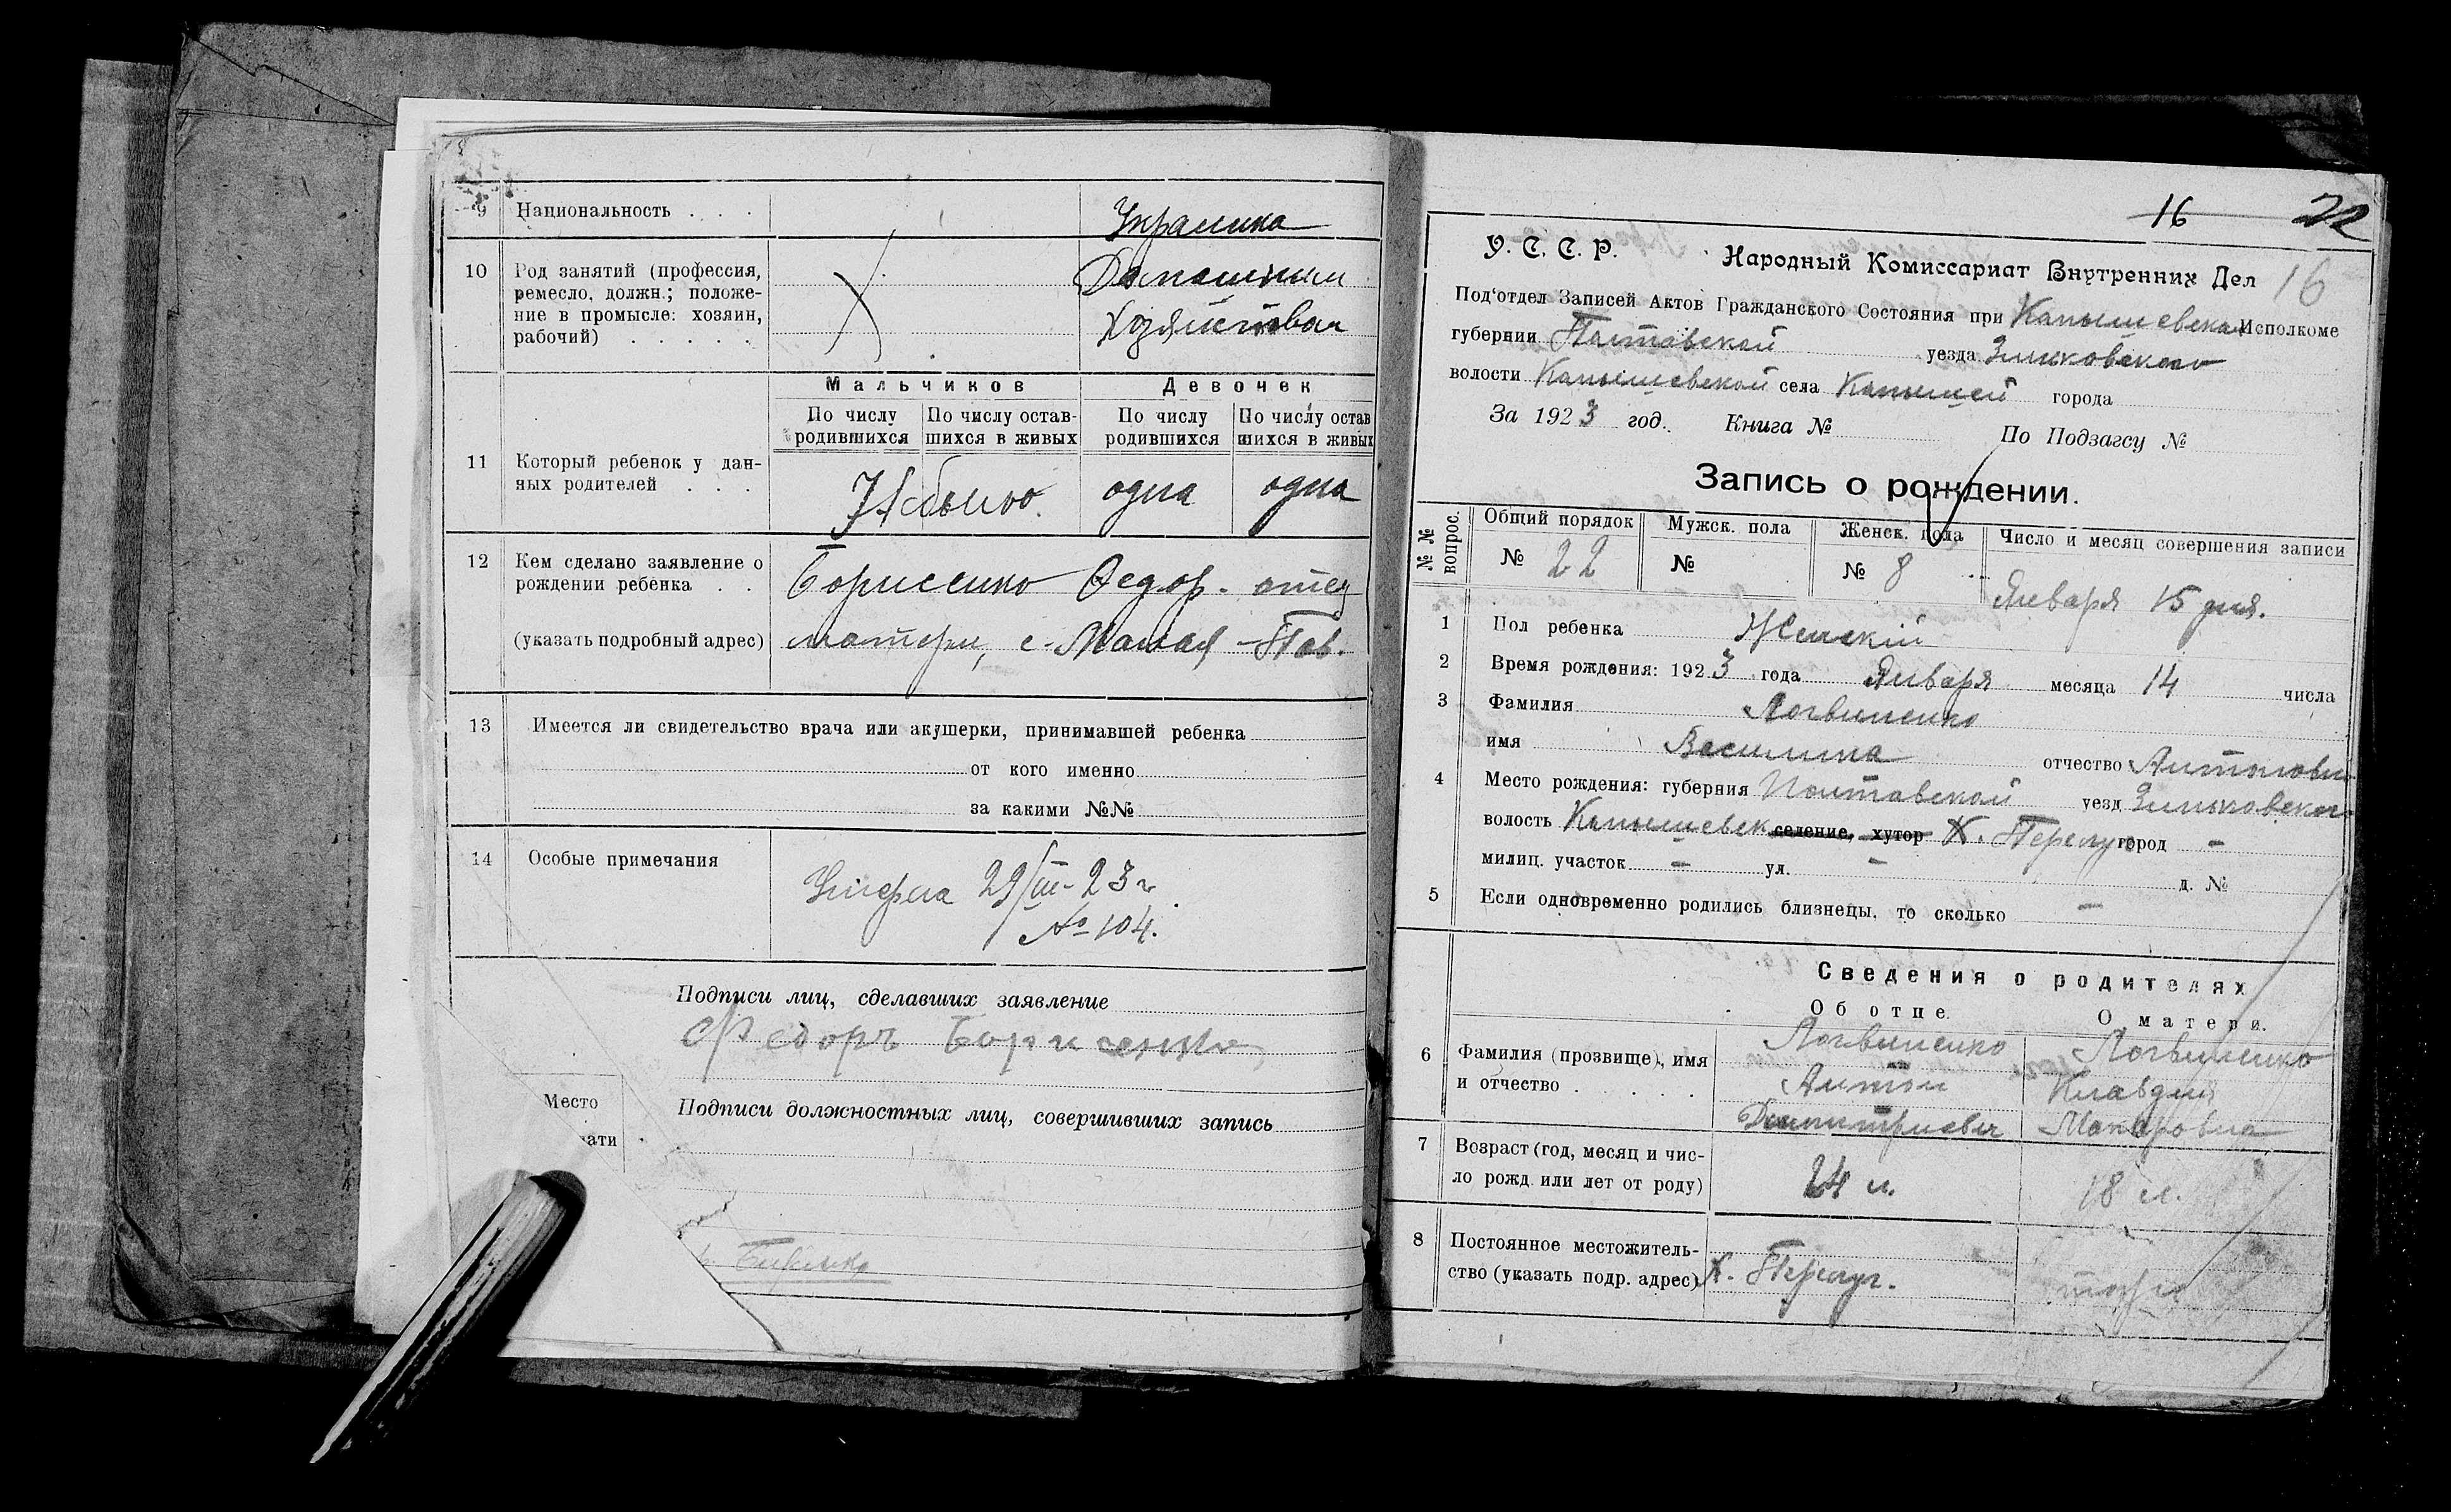 9 Национальность . . . Украинка
10 Род занятий (профессия, Домашним
ремесло, должн.; положе-
ние в промысле: хозяин, Хозяйством
рабочий) . . . . .
Мальчиков Девочек
По числу родившихся По числу остав-шихся в живых По числу родившихся По числу остав шихся в живых
11 Который ребенок у дан-
ных родителей . . . Не было одна одна
12 Кем сделано заявление о
рождении ребенка . . Борисенко Федор. отец
(указать подробный адрес) матери, с.
13 Имеется ли свидетельство врача или акушерки, принимавшей ребенка
от кого именно
за какими №№
14 Особые примечания
Умерла 29/III-23 г.
№ 104.
Подписи лиц, сделавших заявление
Федоръ Борисенко
Место
чати
Подписи должностных лиц, совершивших запись
16 22
У. С. С. Р. Народный Комиссариат Внутренних Дел 16
Под'отдел Записей Актов Гражданского Состояния при Исполкоме
губернии Полтавской уезда Зиньковского
волости села города
За 1923 год. Книга № По Подзагсу №
Запись о рождении.
№ № вопрос. Общий порядок Мужск. пола Женск. пола Число и месяц совершения записи
№ 22 № № 8 Января 15 дня.
1 Пол ребенка Женскій
2 Время рождения: 1923 года Января месяца 14 числа
3 Фамилия Логвиненко
имя Василина отчество
4 Место рождения: губерния Полтавской уезд Зиньковского
волость селение, хутор Х. город -
милиц. участок - ул. - д. №
5 Если одновременно родились близнецы, то сколько -
Сведения о родителях
Об отце. О матери.
6 Фамилия (прозвище), имя Логвиненко Логвиненко
и отчество . . . . Антон Клавдия
Дмитриевич Макаровна
7 Возраст (год, месяц и чис-
ло рожд. или лет от роду) 24 л. 18 л.
8 Постоянное местожитель-
ство (указать подр. адрес) х.